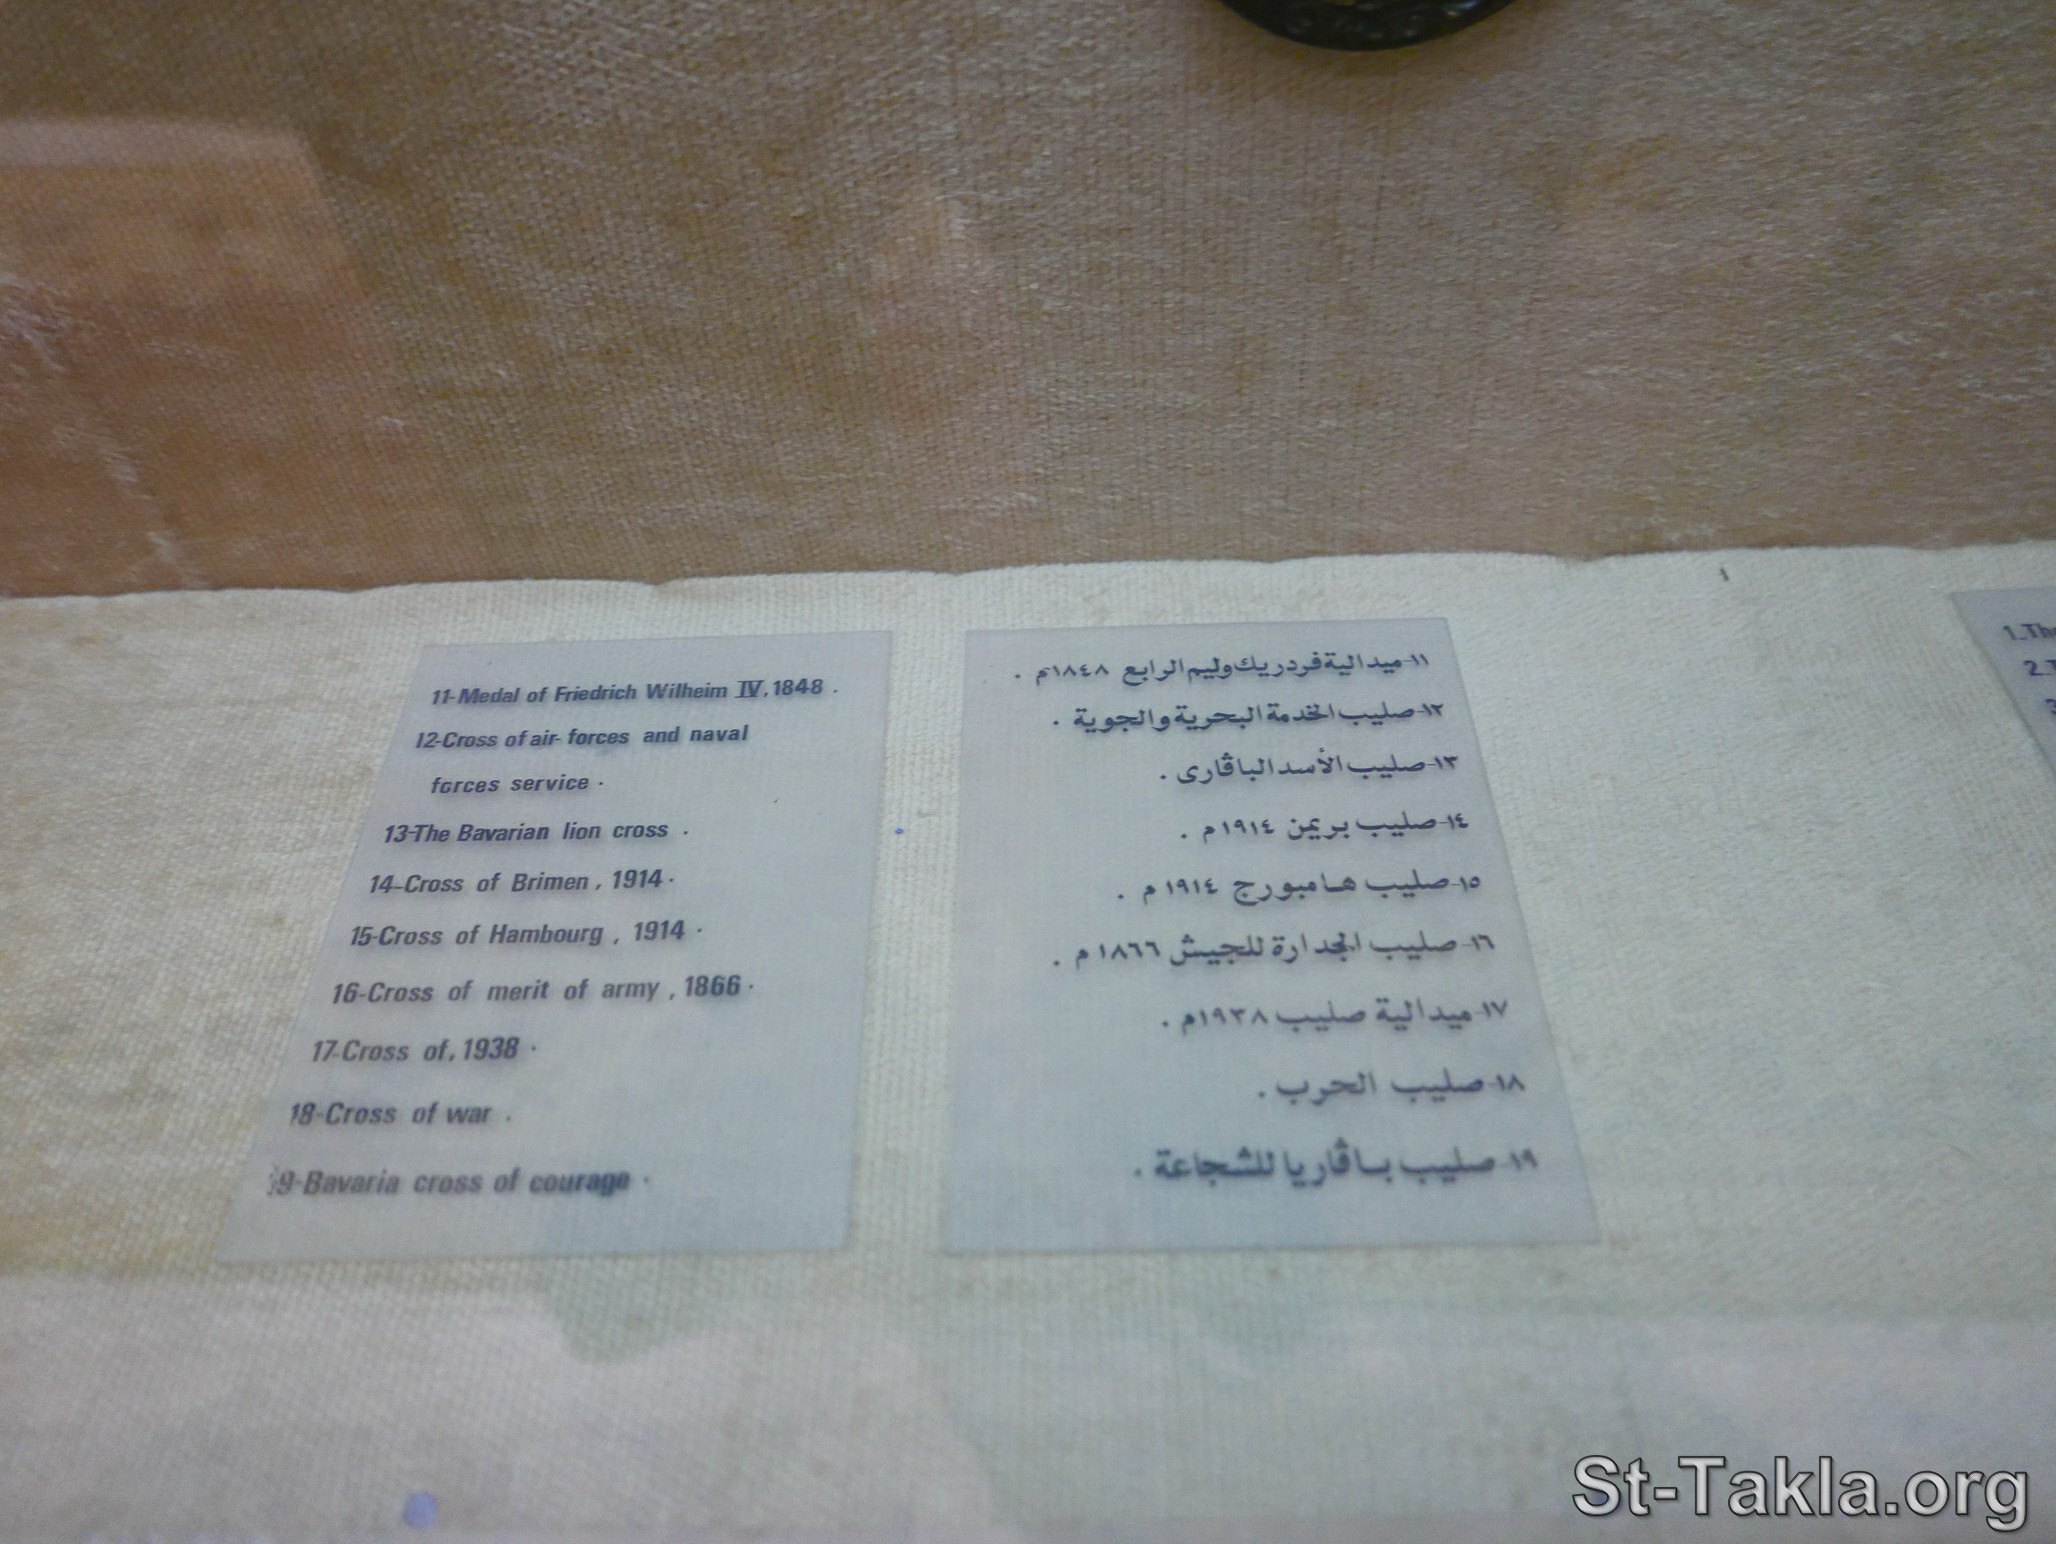 11-Medal of Friedrich Wilheim IV, 1848 .
12-Cross of air- forces and naval
forces service .
13-The Bavarian lion cross .
14-Cross of Brimen , 1914 .
15-Cross of Hambourg , 1914 .
16-Cross of merit of army , 1866 .
17-Cross of, 1938 .
18-Cross of war .
19-Bavaria cross of courage .
١١-ميدالية فردريك وليم الرابع ١٨٤٨م .
١٢-صليب الخدمة البحرية والجوية .
١٣-صليب الأسد الباڤارى .
١٤-صليب بريمن ١٩١٤م .
١٥-صليب هامبورج ١٩١٤م .
١٦-صليب الجدارة للجيش ١٨٦٦م .
١٧-ميدالية صليب ١٩٣٨م .
١٨-صليب الحرب .
١٩-صليب باڤاريا للشجاعة .
1_The
2_T
3
St-Takla.org